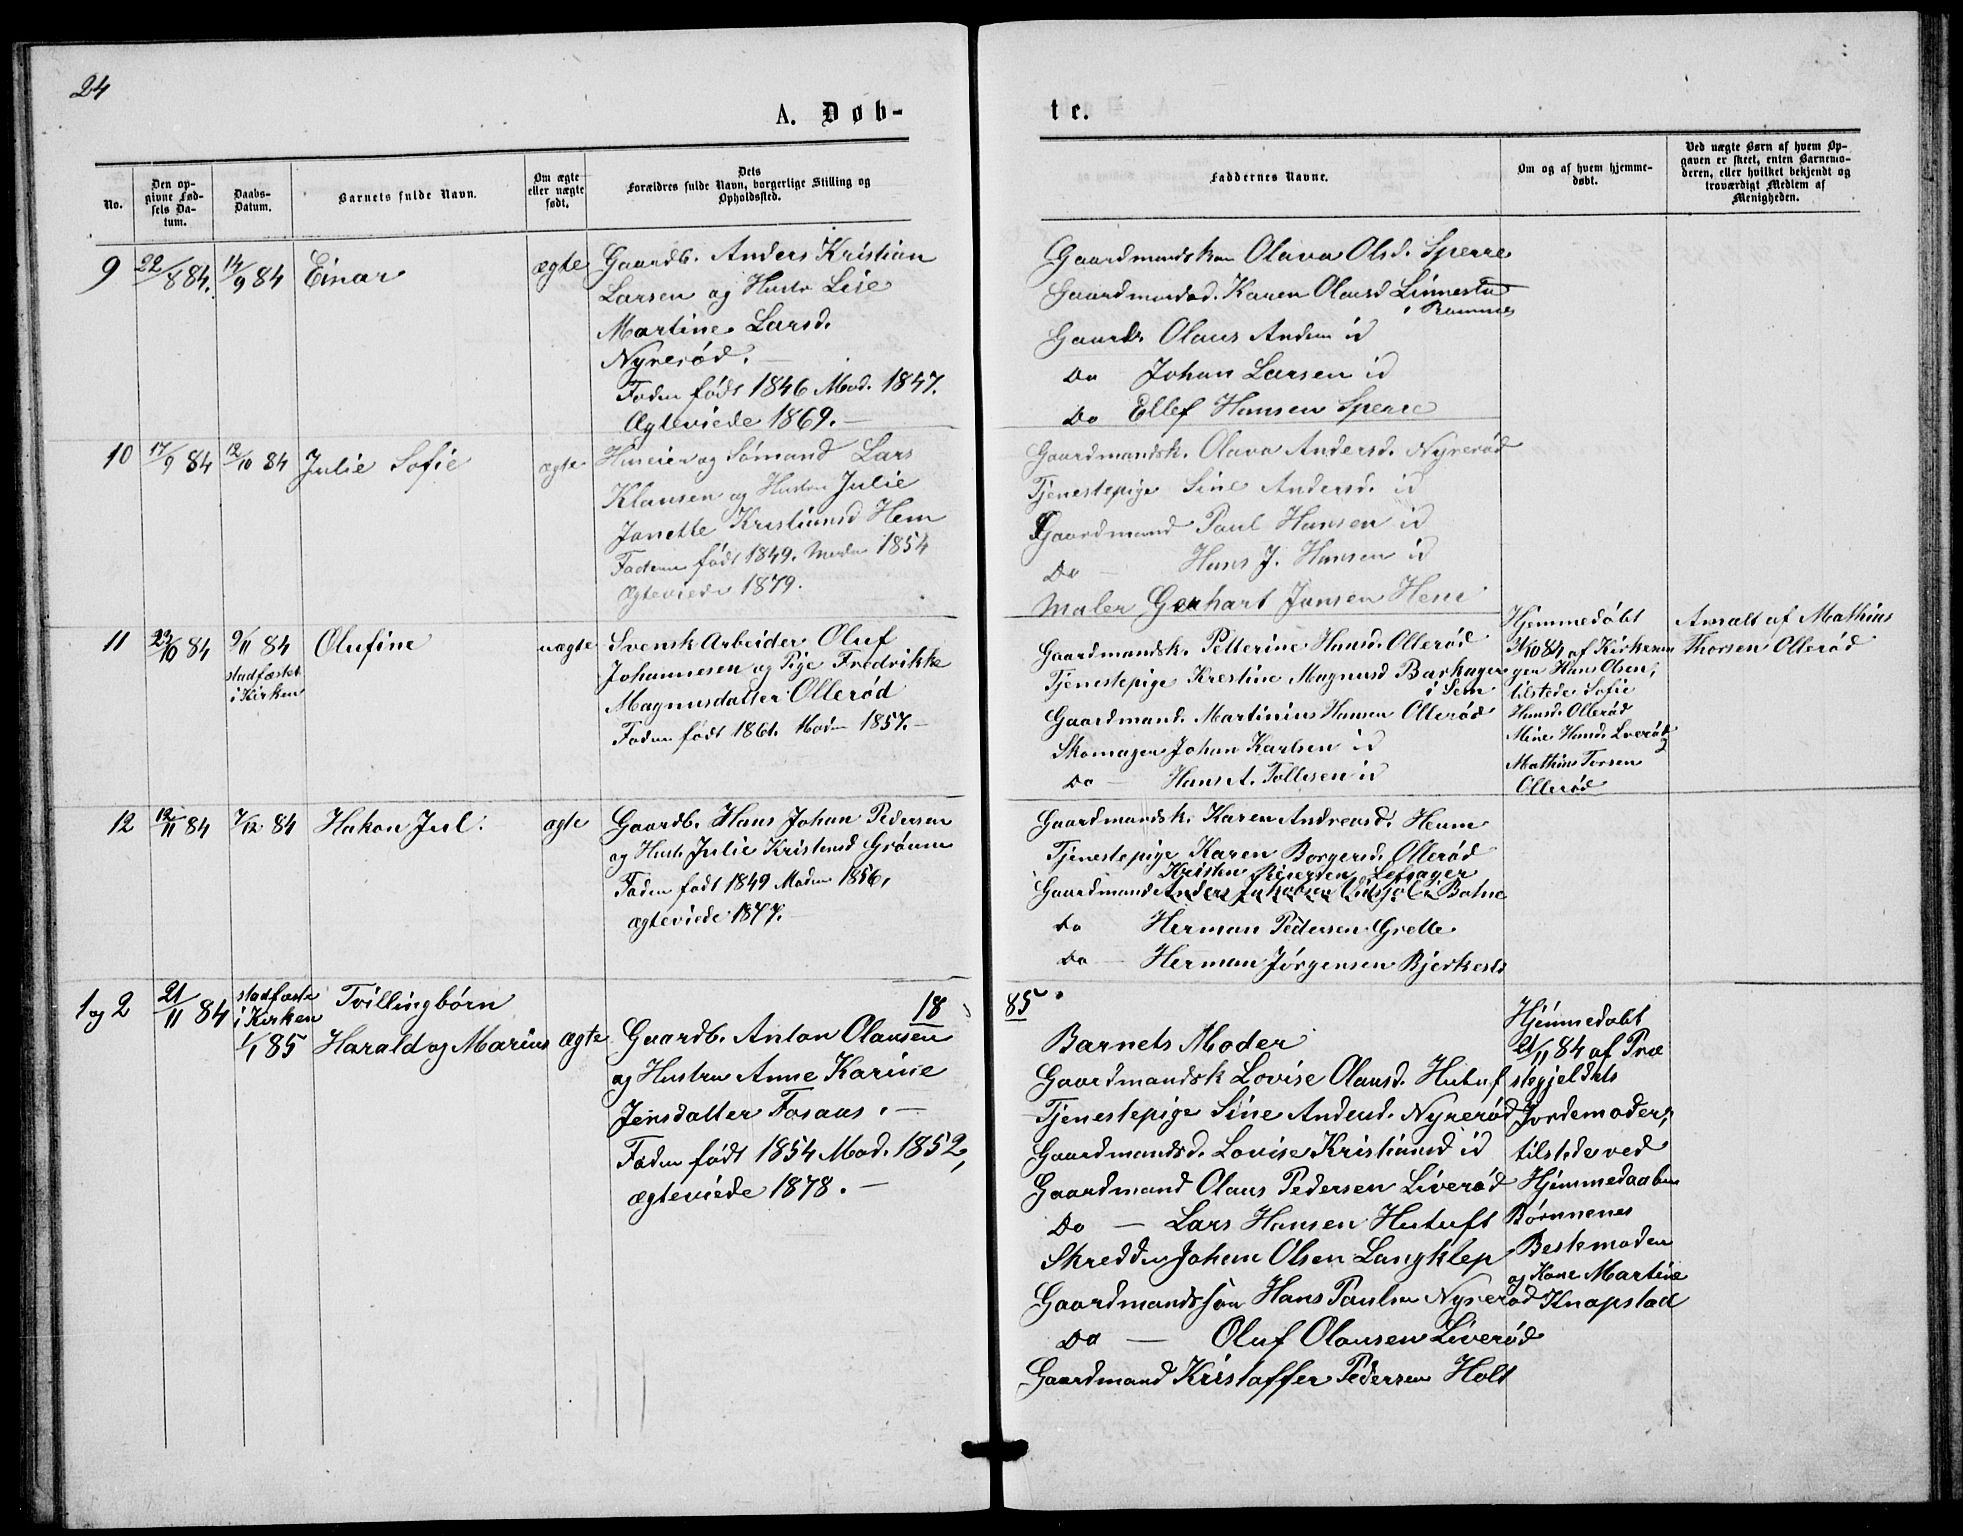 24
A. Døb-
te.
No.
Den op-
givne Fød-
sels Da-
tum.
Daabs-
Datum.
Barnets fulde Navn.
Om ægte
eller uægte
født.
Dets
Forældres fulde Navn, borgerlige Stilling og
Opholdssted.
Faddernes Navne.
Om og af hvem hjemme-
døbt.
Ved uægte Børn af hvem Op-
gaven er skeet, enten Barnemo-
deren, eller hvilket bekjendt og
troværdigt Medlem af
Menigheden.
9
22/8 84.
14/9 84
Einar
ægte
Gaardb. Anders Kristian
Larsen og Hustr Lise
Martine Larsd.
Nyrerød. —
Faden født 1846 Mod. 1847.
Ægteviede 1869. —
Gaardmandskon Olava Olsd. Sperre
Gaardmandsd. Karen Olausd Linnestu
i Ramnes
Gaardb. Olaus Andsen id
Do Johan Larsen id
Do Ellef Hansen Sperre
10
17/9 84
12/10 84
Julie Sofie
ægte
Huseier og Sømand Lars
Klausen og Hustru Julie
Janette Kristiansd Hem
Faderen født 1849. Moden 1854
Ægteviede 1879.
Gaardmandsk. Olava Andersd. Nyrerød
Tjenestepige Sine Andersd. id
Gaardmand Paul Hansen id
Do — Hans J. Hansen id
Maler Gerhart Jansen Hem
11
23/10 84
9/11 84
stadfæstet
i Kirken
Olufine
uægte
Svensk Arbeider Oluf
Johannesen og Pige Fredrikke
Magnusdatter Ollerød
Faden født 1861. Moden 1857. —
Gaardmandsk. Petterine Hansd. Ollerød
Tjenestepige Krestine Magnusd Barkager
i Sem
Gaardmand. Martinius Hansen Ollerød
Skomager Johan Karlsen id
Do — Hans A. Tollesen id
Hjemmedøbt
/10 84 af Kirkesan
gen Hans Olsen,
tilstede Sofie
Hansd. Ollerød
Mine Hansd. Lverød
Mathius Torsen
Ollerød
Anmelt af Mathias
Thorsen Ollerød
12
12/11 84
7/12 84
Hakon Jul.
ægte
Gaardb. Hans Johan Pedersen
og Hustr Julie Kristensd Grøum
Faden født 1849 Moden 1856,
ægteviede 1877. —
Gaardmandsk. Karen Andreasd. Heum
Tjenestepige Karen Borgersd. Ollerød
Kristen Reiersen Lefsager
Gaardmand Anders Jakobsen Vidsjøl i Botne
Do Herman Pedersen Grette
Do — Herman Jørgensen Bjerkestø
18
85.
1 og 2
21/11 84
stadfæste
i Kirken
1/1 85
Tvillingbørn
Harald og Marius
ægte
Gaardb. Anton Olausen
og Hustru Anne Karine
Jensdatter Fosaas. —
Faden født 1854 Mod. 1852,
ægteviede 1878. —
Barnets Moder
Gaardmandsk Lovise Olausd. Hutuft
Tjenestepige Sine Andersd. Nyrerød
Gaardmandsd. Lovise Kristiansd id
Gaardmand Olaus Pedersen Liverød
Do — Lars Hansen Hutuft
Skredder Johan Olsen Langklep
Gaardmandssøn Hans Paulsen Nyrerød
Do — Oluf Olausen Liverød
Gaardmand Kristoffer Pedersen Holt
Hjemmedøbt
21/11 84 af Præ
stegjeldets
Jordemoder,
tilstede ved
Hjemmedaaben
Børnnenes
Bestemoder
og Kone Martine
Knapstad